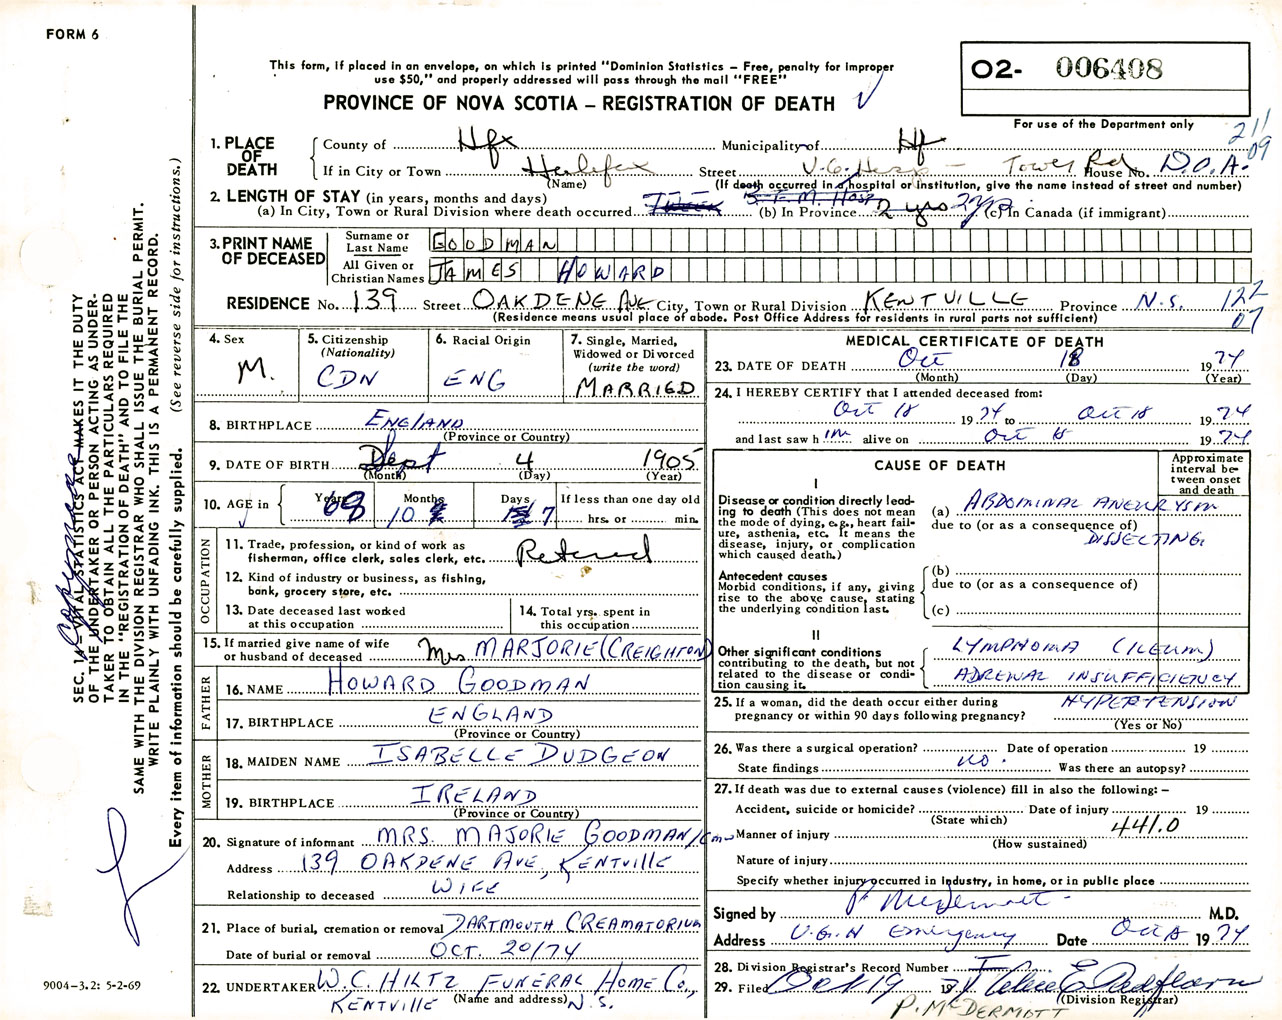 FORM 6
This form, if placed in an envelope, on which is printed "Dominion Statistics – Free, penalty for improper
use $50," and properly addressed will pass through the mail "FREE"
PROVINCE OF NOVA SCOTIA – REGISTRATION OF DEATH
O2- 006408
For use of the Department only
211
09
1. PLACE OF DEATH
County of Hfx Municipality of Hfx
If in City or Town Halifax Street V.G. Hosp – Tower Rd House No. D.O.A.
(Name) (If death occurred in a hospital or institution, give the name instead of street and number)
2. LENGTH OF STAY (in years, months and days)
(a) In City, Town or Rural Division where death occurred (b) In Province 2 yrs (c) In Canada (if immigrant)
3. PRINT NAME OF DECEASED
Surname or Last Name GOODMAN
All Given or Christian Names JAMES HOWARD
RESIDENCE No. 139 Street OAKDENE AVE City, Town or Rural Division KENTVILLE Province N.S. 122
07
(Residence means usual place of abode. Post Office Address for residents in rural parts not sufficient)
4. Sex M.
5. Citizenship (Nationality) CDN
6. Racial Origin ENG
7. Single, Married, Widowed or Divorced (write the word) MARRIED
8. BIRTHPLACE ENGLAND
(Province or Country)
9. DATE OF BIRTH Sept 4 1905
(Month) (Day) (Year)
10. AGE in Years 68 Months 10 Days 7 If less than one day old
hrs. or min.
OCCUPATION
11. Trade, profession, or kind of work as
fisherman, office clerk, sales clerk, etc. Retired
12. Kind of industry or business, as fishing,
bank, grocery store, etc.
13. Date deceased last worked
at this occupation
14. Total yrs. spent in
this occupation
15. If married give name of wife
or husband of deceased Mrs MARJORIE (CREIGHTON)
FATHER
16. NAME HOWARD GOODMAN
17. BIRTHPLACE ENGLAND
(Province or Country)
MOTHER
18. MAIDEN NAME ISABELLE DUDGEON
19. BIRTHPLACE IRELAND
(Province or Country)
20. Signature of informant MRS. MAJORIE GOODMAN
Address 139 OAKDENE AVE, KENTVILLE
Relationship to deceased WIFE
21. Place of burial, cremation or removal DARTMOUTH CREAMATORIUM
Date of burial or removal OCT. 20/74
22. UNDERTAKER W.C. HILTZ FUNERAL HOME CO.,
KENTVILLE (Name and address) N.S.
MEDICAL CERTIFICATE OF DEATH
23. DATE OF DEATH Oct 18 1974
(Month) (Day) (Year)
24. I HEREBY CERTIFY that I attended deceased from:
Oct 18 1974 to Oct 18 1974
and last saw him alive on Oct 18 1974
CAUSE OF DEATH
Approximate interval between onset and death
I
Disease or condition directly leading to death (This does not mean
the mode of dying, e.g., heart failure, asthenia, etc. It means the
disease, injury, or complication
which caused death.)
(a) ABDOMINAL ANEURYSM
due to (or as a consequence of)
DISSECTING.
Antecedent causes
Morbid conditions, if any, giving
rise to the above cause, stating
the underlying condition last.
(b)
due to (or as a consequence of)
(c)
II
Other significant conditions
contributing to the death, but not
related to the disease or condition causing it.
LYMPHOMA (ILEUM)
ADRENAL INSUFFICIENCY
HYPERTENSION
25. If a woman, did the death occur either during
pregnancy or within 90 days following pregnancy?
(Yes or No)
26. Was there a surgical operation? Date of operation 19
no.
State findings Was there an autopsy?
27. If death was due to external causes (violence) fill in also the following: –
Accident, suicide or homicide? Date of injury 19
(State which) 441.0
Manner of injury
(How sustained)
Nature of injury
Specify whether injury occurred in industry, in home, or in public place
Signed by P McDermott M.D.
Address V.G.H Emergency Date Oct 18 1974
28. Division Registrar's Record Number
29. Filed Oct 19 19
(Division Registrar)
P. McDERMOTT
SEC. 14 – VITAL STATISTICS ACT MAKES IT THE DUTY
OF THE UNDERTAKER OR PERSON ACTING AS UNDERTAKER TO OBTAIN ALL THE PARTICULARS REQUIRED
IN THE "REGISTRATION OF DEATH" AND TO FILE THE
SAME WITH THE DIVISION REGISTRAR WHO SHALL ISSUE THE BURIAL PERMIT.
WRITE PLAINLY WITH UNFADING INK. THIS IS A PERMANENT RECORD.
Every item of information should be carefully supplied. (See reverse side for instructions.)
9004-3.2: 5-2-69